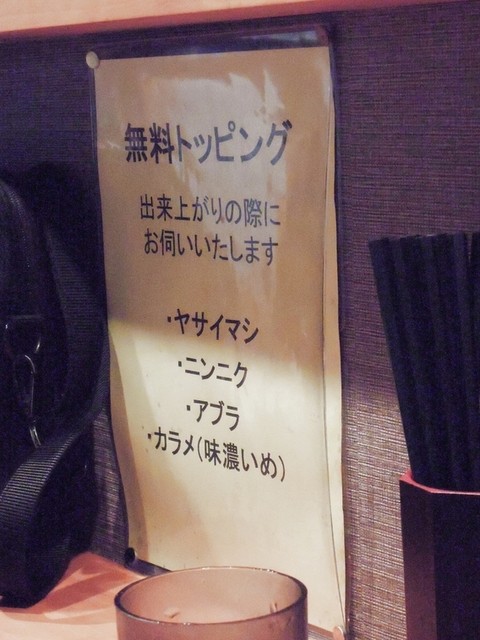 無料トッピング
出来上がりの際に
お伺いいたします
・ヤサイマシ
・ニンニク
・アブラ
・カラメ(味濃いめ)